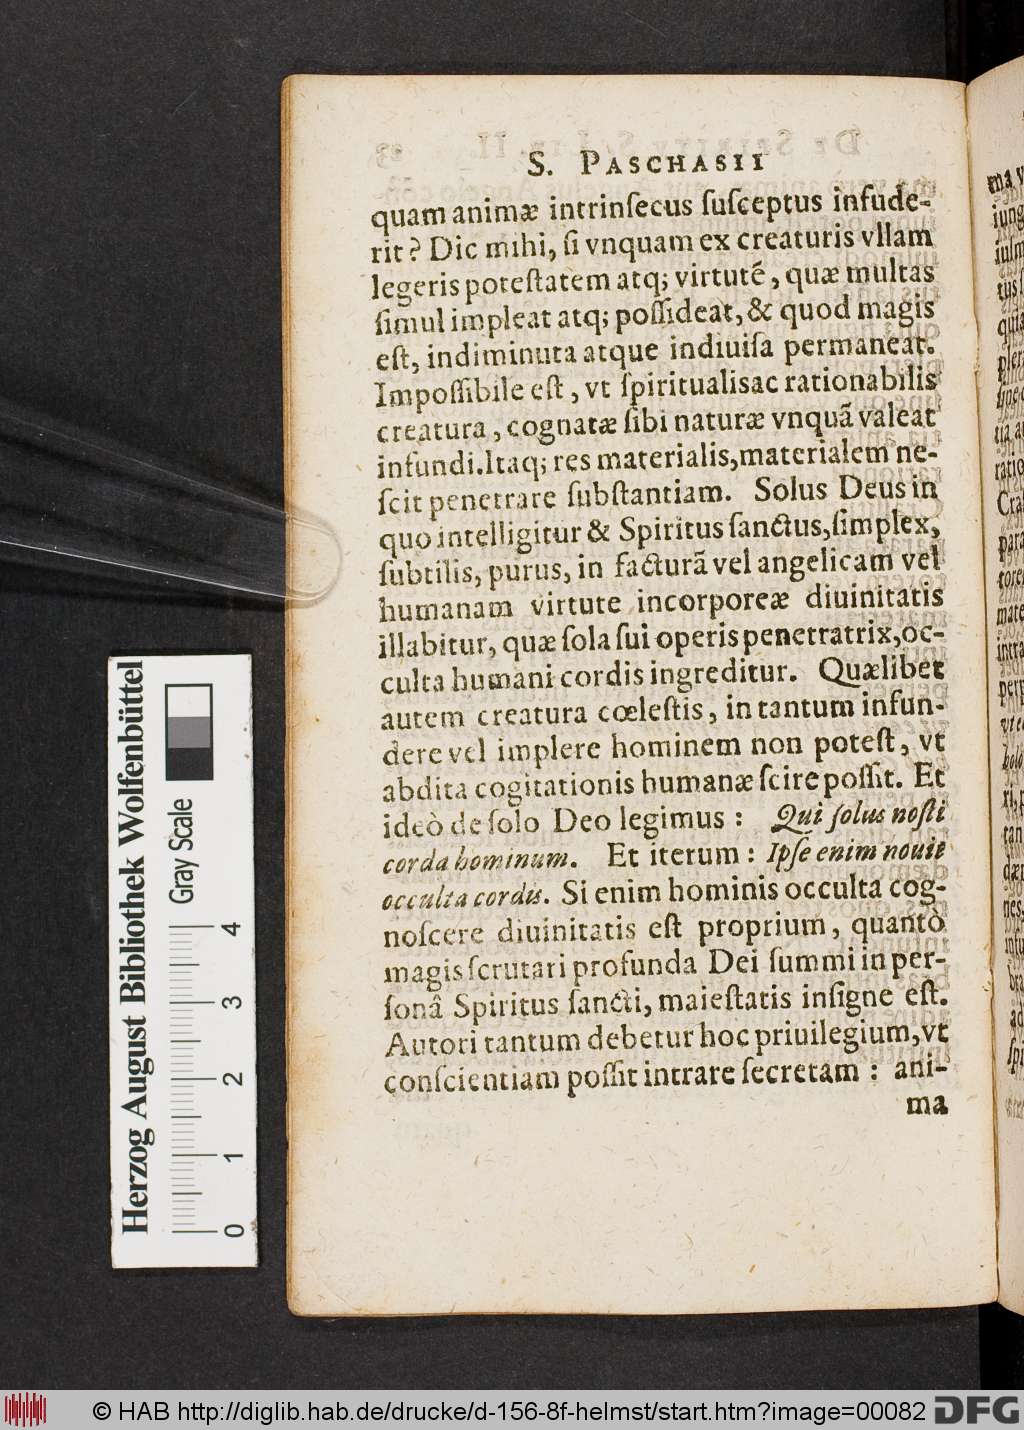 S. PASCHASII
quam animæ intrinſecus ſuſceptus infude-
rit? Dic mihi, ſi vnquam ex creaturis vllam
legeris poteſtatem atq; virtutē, quæ multas
ſimul impleat atq; poſſideat, & quod magis
eſt, indiminuta atque indiuiſa permaneat.
Impoſſibile eſt, vt ſpiritualis ac rationabilis
creatura, cognatæ ſibi naturæ vnquã valeat
infundi. Itaq; res materialis, materialem ne-
ſcit penetrare ſubſtantiam. Solus Deus in
quo intelligitur & Spiritus ſanctus, ſimplex,
ſubtilis, purus, in facturã vel angelicam vel
humanam virtute incorporeæ diuinitatis
illabitur, quæ ſola ſui operis penetratrix, oc-
culta humani cordis ingreditur. Quælibet
autem creatura cœleſtis, in tantum infun-
dere vel implere hominem non poteſt, vt
abdita cogitationis humanæ ſcire poſſit. Et
ideò de ſolo Deo legimus: Qui ſolus noſti
corda hominum. Et iterum: Ipſe enim nouit
occulta cordis. Si enim hominis occulta cog-
noſcere diuinitatis eſt proprium, quantò
magis ſcrutari profunda Dei ſummi in per-
ſonâ Spiritus ſancti, maieſtatis inſigne eſt.
Autori tantum debetur hoc priuilegium, vt
conſcientiam poſſit intrare ſecretam: ani-
ma
Herzog August Bibliothek Wolfenbüttel
Gray Scale
0 1 2 3 4
© HAB http://diglib.hab.de/drucke/d-156-8f-helmst/start.htm?image=00082
DFG